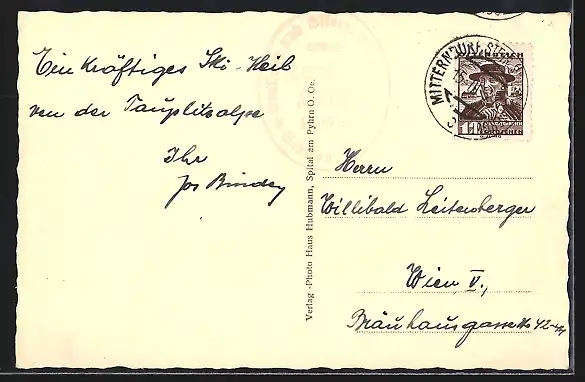 Ein kräftiges Ski-Heil
von der Tauplitzalpe
Ihr
Jos Binder
Verlag-Photo Haus Hubmann, Spital am Pyhrn O. Oe.
MITTERNDORF
Herrn
Willibald Leitenberger
Wien V.,
Bräuhausgasse